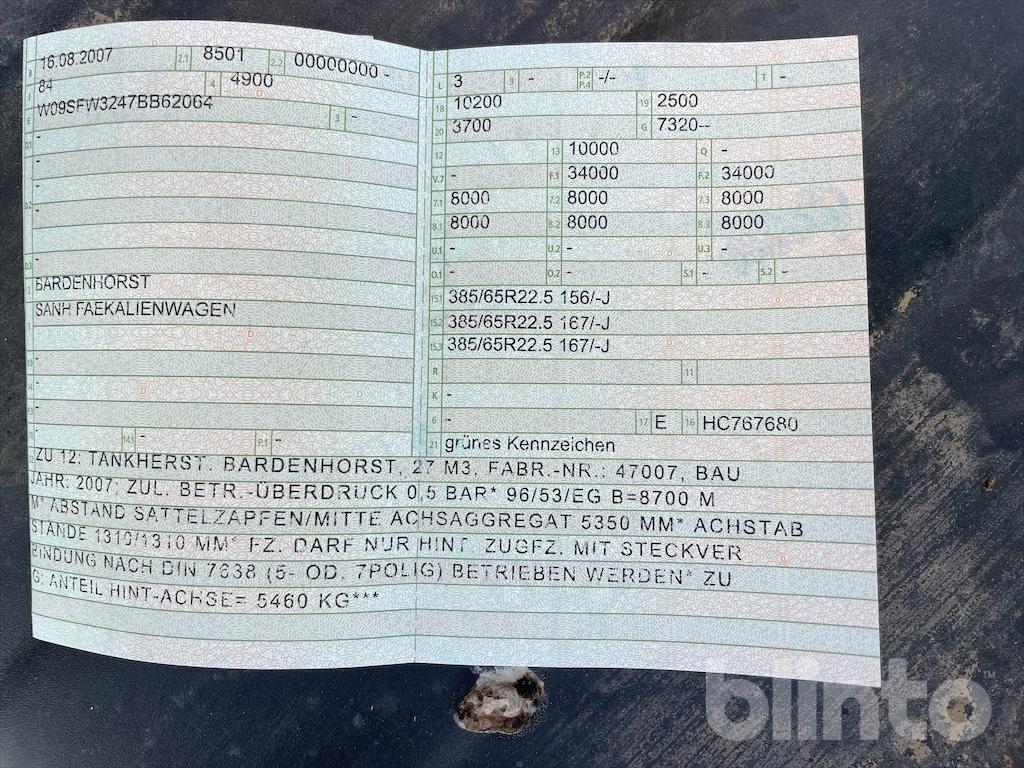 B 16.08.2007 2.1 8501 2.2 00000000 -
J 84 4 4900
E W09SFW3247BB62064 3 -
D.1 -
-
D.2 -
-
-
D.3 -
2 BARDENHORST
5 SANH FAEKALIENWAGEN
-
-
-
- 14.1 - P.1 -
L 3 9 - P.2 P.4 -/- T -
18 10200 19 2500
20 3700 G 7320--
12 13 10000 Q -
V.7 - F.1 34000 F.2 34000
7.1 8000 7.2 8000 7.3 8000
8.1 8000 8.2 8000 8.3 8000
U.1 - U.2 - U.3 -
O.1 - O.2 - S.1 - S.2 -
15.1 385/65R22.5 156/-J
15.2 385/65R22.5 167/-J
15.3 385/65R22.5 167/-J
R 11
K -
6 - 17 E 16 HC767680
21 grünes Kennzeichen
ZU 12: TANKHERST. BARDENHORST, 27 M3, FABR.-NR.: 47007, BAU
JAHR: 2007; ZUL. BETR.-ÜBERDRUCK 0,5 BAR* 96/53/EG B=8700 M
M* ABSTAND SATTELZAPFEN/MITTE ACHSAGGREGAT 5350 MM* ACHSTAB
STÄNDE 1310/1310 MM* FZ. DARF NUR HINT. ZUGFZ. MIT STECKVER
BINDUNG NACH DIN 7638 (5- OD. 7POLIG) BETRIEBEN WERDEN* ZU
G: ANTEIL HINT-ACHSE= 5460 KG***
blinto™